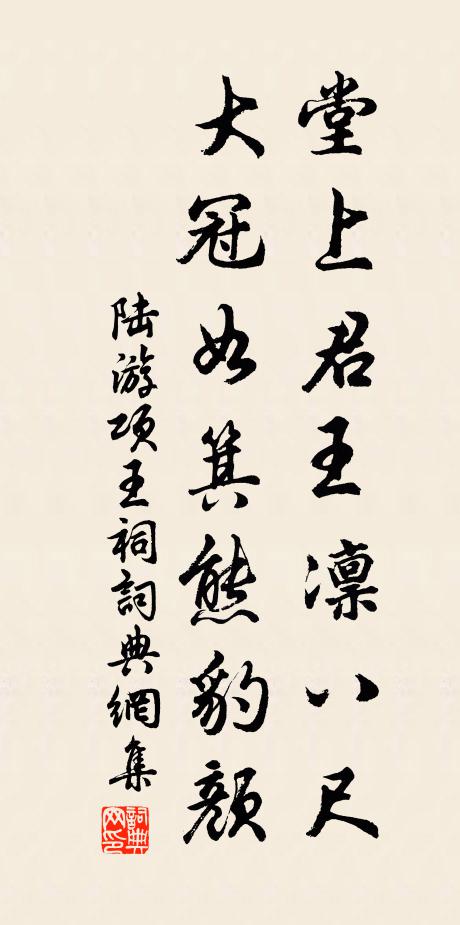 堂上君王凛八尺
大冠如箕熊豹顏
陸游項王祠詞典網集
詞典網印